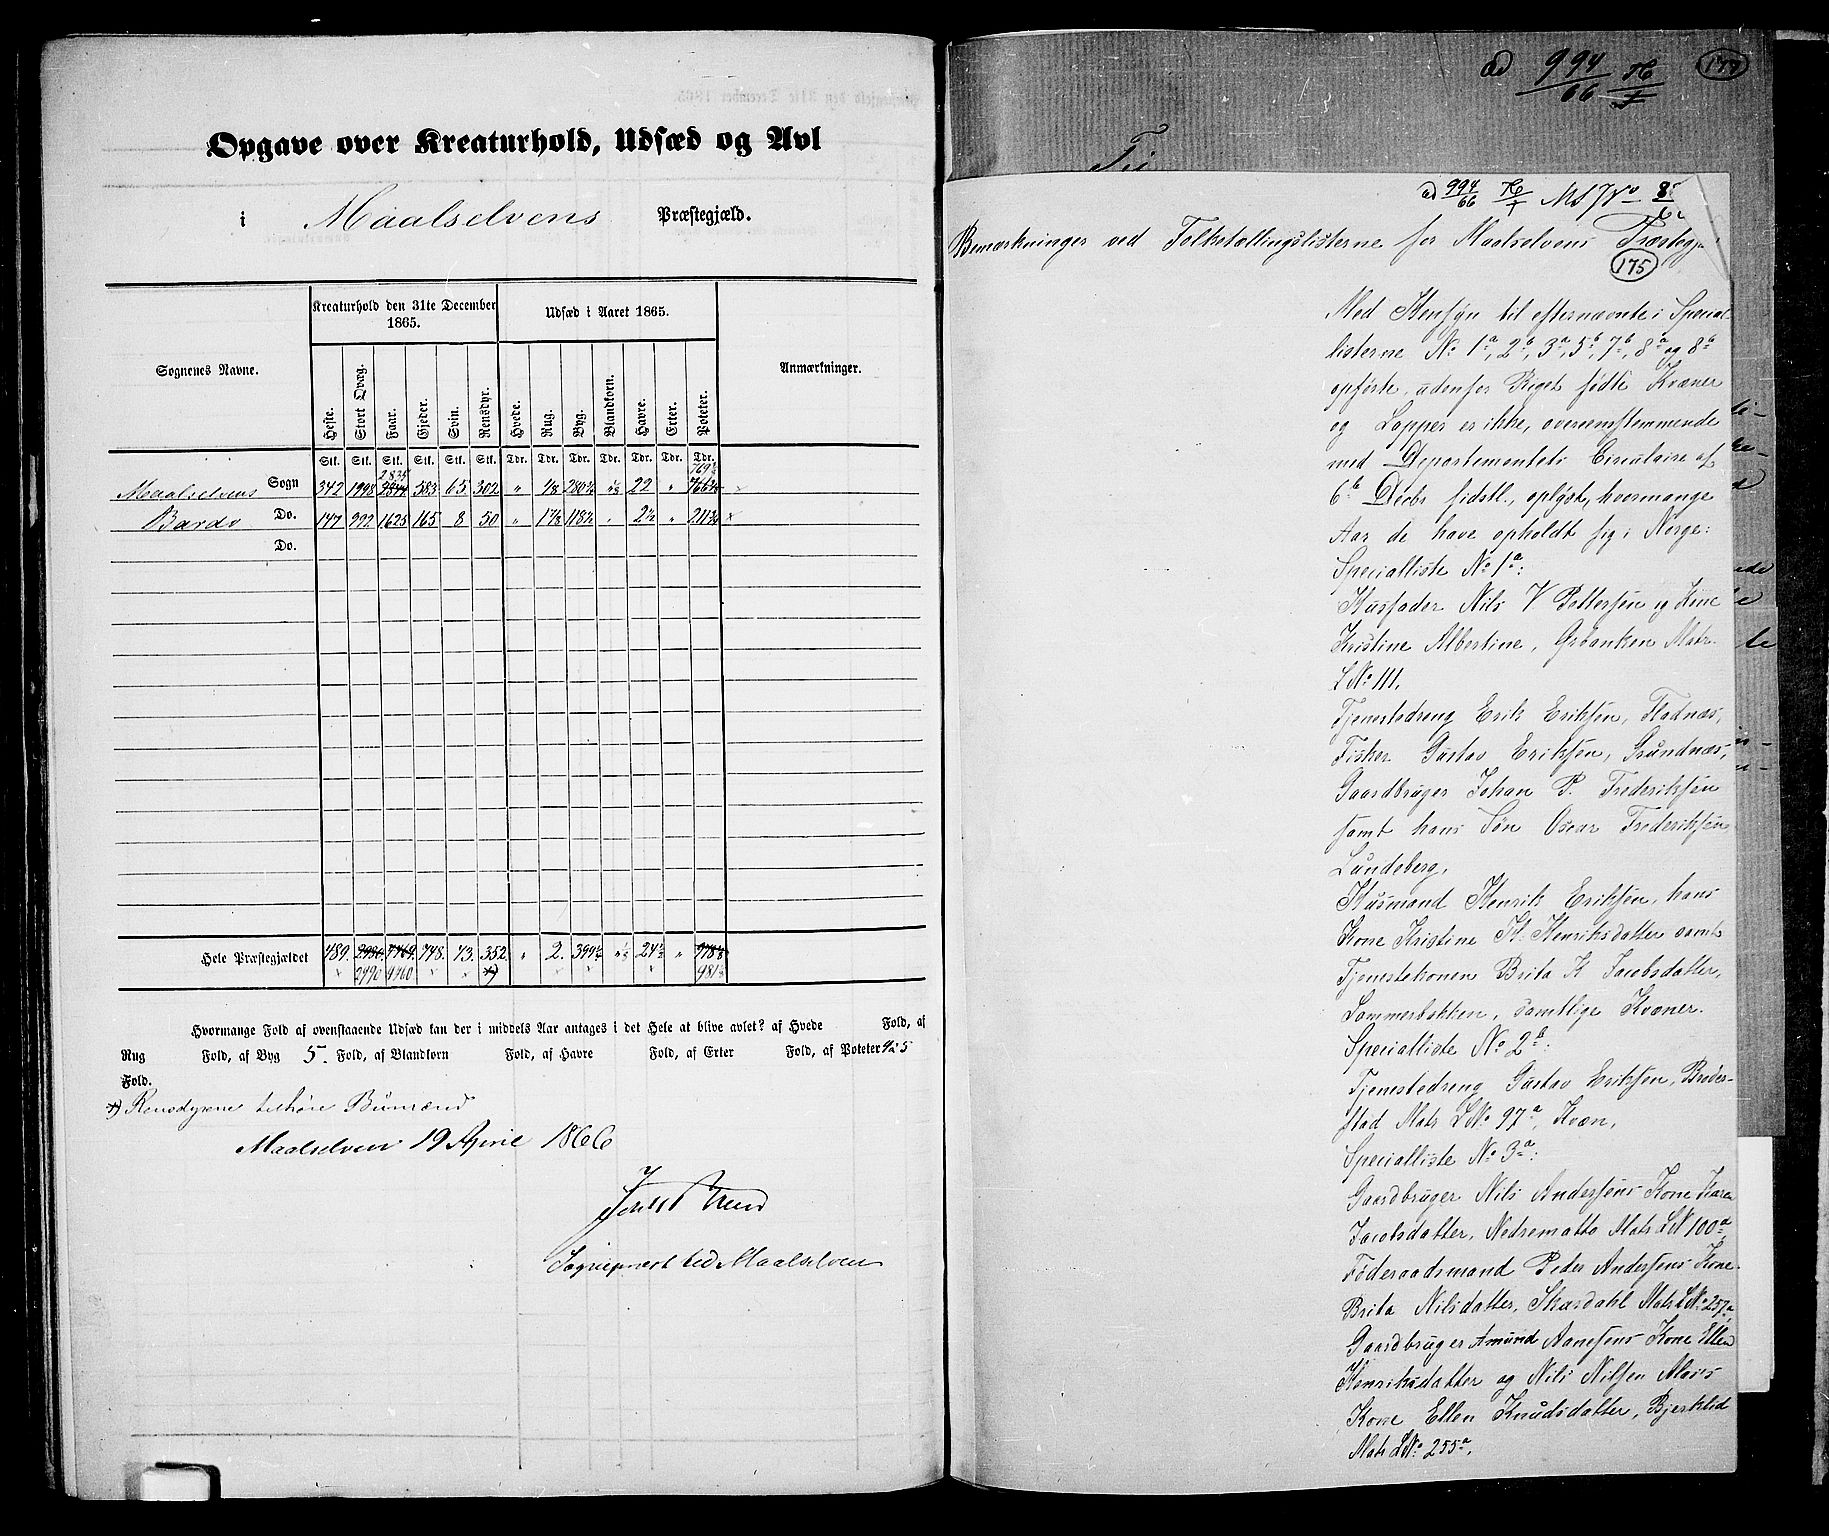 Opgave over Kreaturhold, Udsæd og Avl
i Maalselvens Præstegjæld.
Sognenes Navne.
Kreaturhold den 31te December 1865.
Udsæd i Aaret 1865.
Anmærkninger.
Heste. Stort Qvæg. Faar. Gjeder. Svin. Rensdyr. Hvede. Rug. Byg. Blandkorn. Havre. Erter. Poteter.
Stk. Stk. Stk. Stk. Stk. Stk. Tdr. Tdr. Tdr. Tdr. Tdr. Tdr. Tdr.
2835 769½
Maalselvens Sogn 342 1998 2844 583 65 302 " 1/8 280½ 22 "
Bardo Do. 147 992 1625 165 8 50 " 1⅞ 118½ " 2½ "
Do.
Hele Præstegjældet 489. 2990. 4469. 748. 73. 352. " 2. 399½ 24½ "
2990 4460 *)
Hvormange Fold af ovenstaaende Udsæd kan der i middels Aar antages i det Hele at blive avlet? af Hvede Fold, af
Rug Fold, af Byg 5. Fold, af Blandkorn Fold, af Havre Fold, af Erter Fold, af Poteter
Fold.
*) Rensdyrene tilhøre Bumænd
Maalselven 19 April 1866
Sogneprest ved Maalselven
ad 994/66
Til
ad 994/66
Bemærkninger ved Folketællingslisterne for Maalselvens Præstegj
175
Med Hensyn til efternævnte i Special-
listerne No 1a, 2b, 3a, 5b, 7b, 8a og 8b
opførte, udenfor Riget fødte Kvæner
og Lapper er ikke, overensstemmende
med Departementets Circulaire af
6te Decbr sidstl., oplyst, hvormange
Aar de have opholdt sig i Norge:
Specialliste No 1a:
Husfader Nils V Pettersen og Kone
Kristine Albertine, Grbanken Matr.
LNo 111.
Tjenestedreng Erik Eriksen, Fladnæs,
Fisker Gustav Eriksen, Grundnæs,
Gaardbruger Johan P. Frederiksen
samt hans Søn Oscar Frederiksen
Lundeberg,
Husmand Henrik Eriksen, hans
Kone Kristine H. Henriksdatter samt
Tjenestekonen Brita K Jacobsdatter,
Lommerbakken, samtlige Kvæner.
Specialliste No 2b:
Tjenestedreng Gustav Eriksen, Broder-
stad Matr LNo 97a, Kvæn,
Specialliste No 3a:
Gaardbruger Nils Andersens Kone Karen
Jacobsdatter, Nedremo­tta Matr LN 100a
Føderaadsmand Peder Andersens Kone
Brita Nilsdatter, Skardahl Matr LNo 257a
Gaardbruger Amund Aanesens Kone Ellen
Henriksdatter og Nils Nilsen Moe's
Kone Ellen Knudsdatter, Bjerklid
Matr LNo 255a.